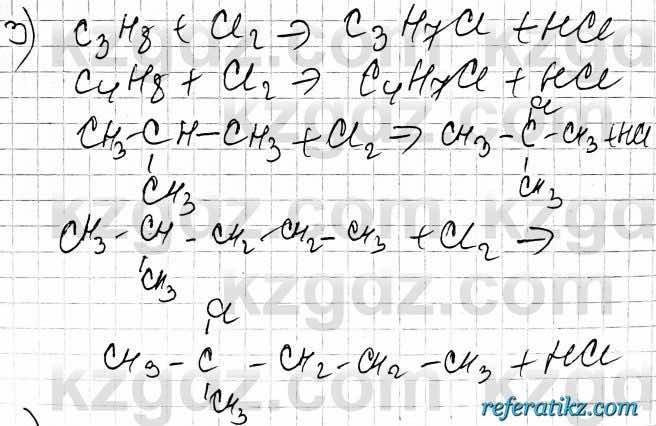 3) C3H8 + Cl2 → C3H7Cl + HCl
C4H8 + Cl2 → C4H7Cl + HCl
Cl
CH3-CH-CH3 + Cl2 → CH3-C-CH3 + HCl
CH3 CH3
CH3-CH-CH2-CH2-CH3 + Cl2 →
CH3
Cl
CH3-C-CH2-CH2-CH3 + HCl
CH3
kzgdz.com
referatikz.com